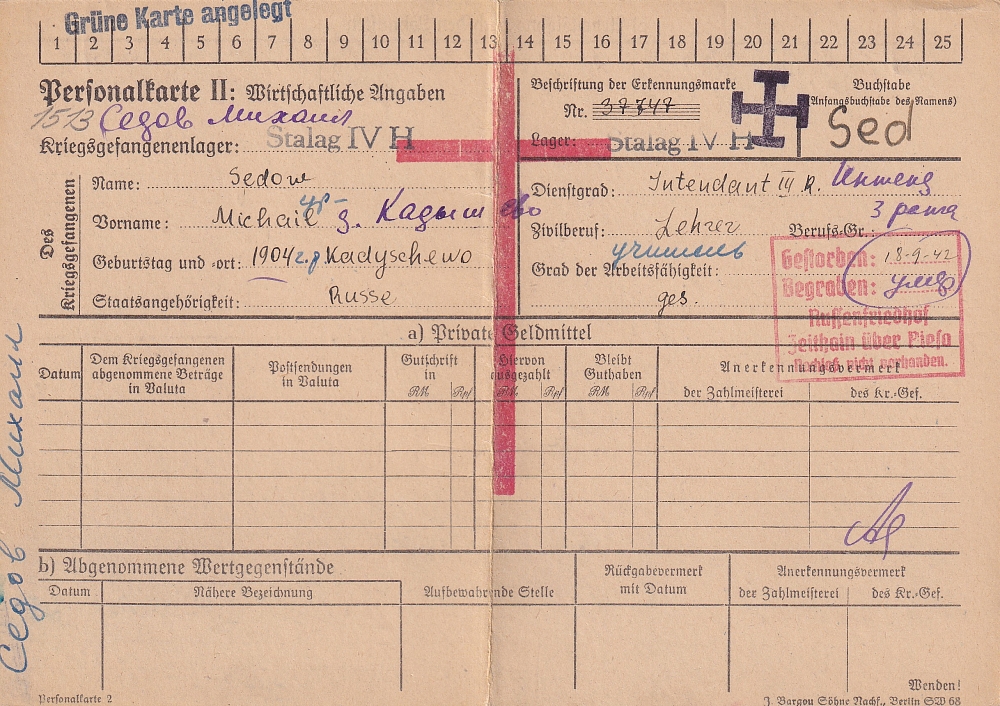 Grüne Karte angelegt
1 2 3 4 5 6 7 8 9 10 11 12 13 14 15 16 17 18 19 20 21 22 23 24 25
Personalkarte II: Wirtschaftliche Angaben
1513 Седов Михаил
Kriegsgefangenenlager: Stalag IV H
Beschriftung der Erkennungsmarke
Nr. 37747
Lager: Stalag IV H
Buchstabe
(Anfangsbuchstabe des Namens)
Sed
Des Kriegsgefangenen
Name: Sedow
Vorname: Michail д. Кадышево
Geburtstag und -ort: 1904 г.р Kadyschewo
Staatsangehörigkeit: Russe
Dienstgrad: Intendant III R. Интенд
3 ранга
Zivilberuf: Lehrer Berufs-Gr.:
учитель
Grad der Arbeitsfähigkeit:
ges.
Gestorben: 18-9-42
Begraben: умер
Russenfriedhof
Zeithain über Riesa
Nachlaß nicht vorhanden.
a) Private Geldmittel
Datum
Dem Kriegsgefangenen abgenommene Beträge in Valuta
Postsendungen in Valuta
Gutschrift in
RM Rpf
Hiervon ausgezahlt
RM Rpf
Bleibt Guthaben
RM Rpf
Anerkennungsvermerk
der Zahlmeisterei des Kr.-Gef.
b) Abgenommene Wertgegenstände
Datum Nähere Bezeichnung Aufbewahrende Stelle
Rückgabevermerk mit Datum
Anerkennungsvermerk
der Zahlmeisterei des Kr.-Gef.
Седов Михаил
Wenden!
Personalkarte 2
J. Bargou Söhne Nachf., Berlin SW 68